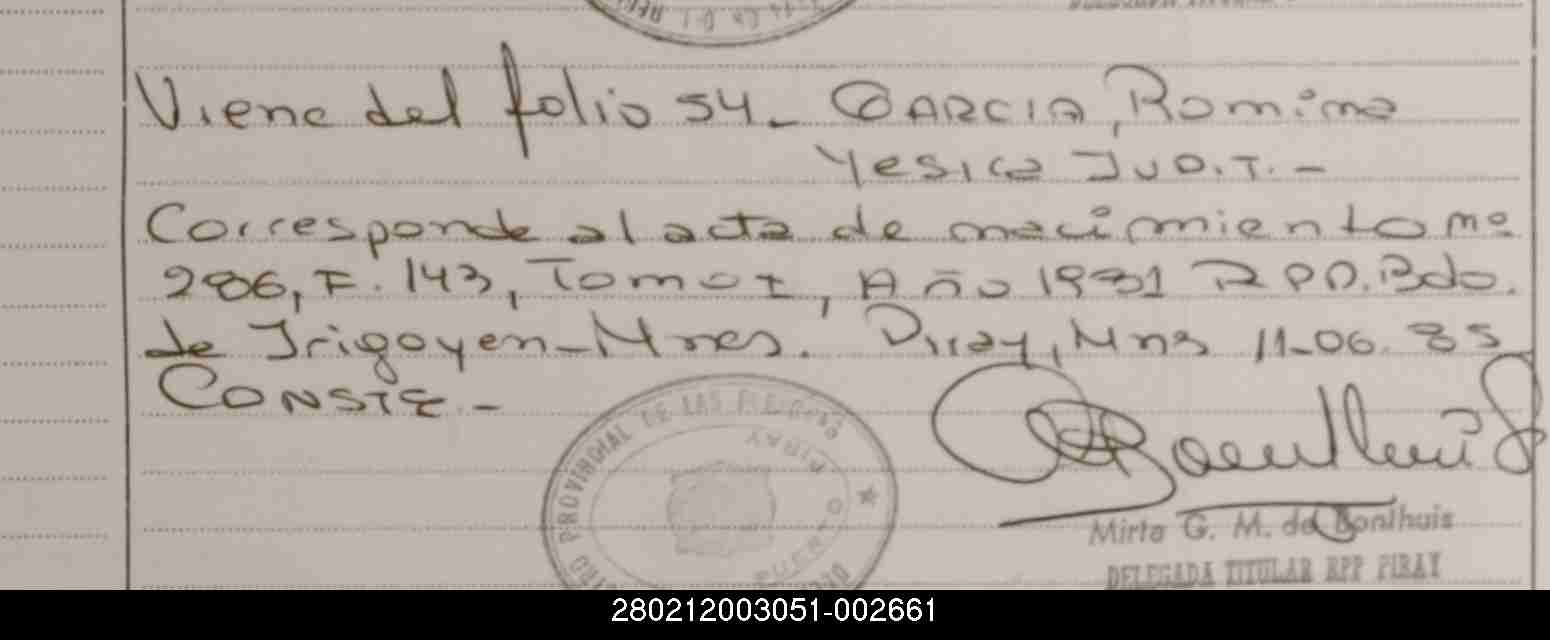 Viene del folio 54_ GARCIA, Romina
Yesica JUD.T. -
Corresponde al acta de nacimiento nº
286, F. 143, Tomo I, Año 1981 RPP. Bdo.
de Irigoyen_Mnes. Piray, Mns 11_06. 85
CONSTE. -
REGISTRO PROVINCIAL DE LAS PERSONAS
PUERTO PIRAY
Mirta G. M. de Bonthuis
DELEGADA TITULAR RPP PIRAY
280212003051-002661